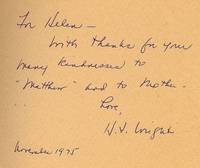 For Helen —
With thanks for your
many kindnesses to
"Matthew" and to Mother.
Love,
November 1975